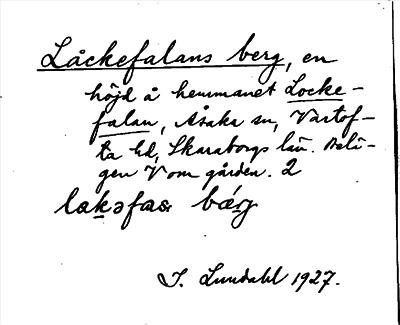 Låckefalans berg, en
höjd å hemmanet Locke-
falan, Åsaka sn, Vartof-
ta hd, Skaraborgs län. Belä-
gen V om gården. 2
lakəfaas bærg
I. Lundahl 1927.